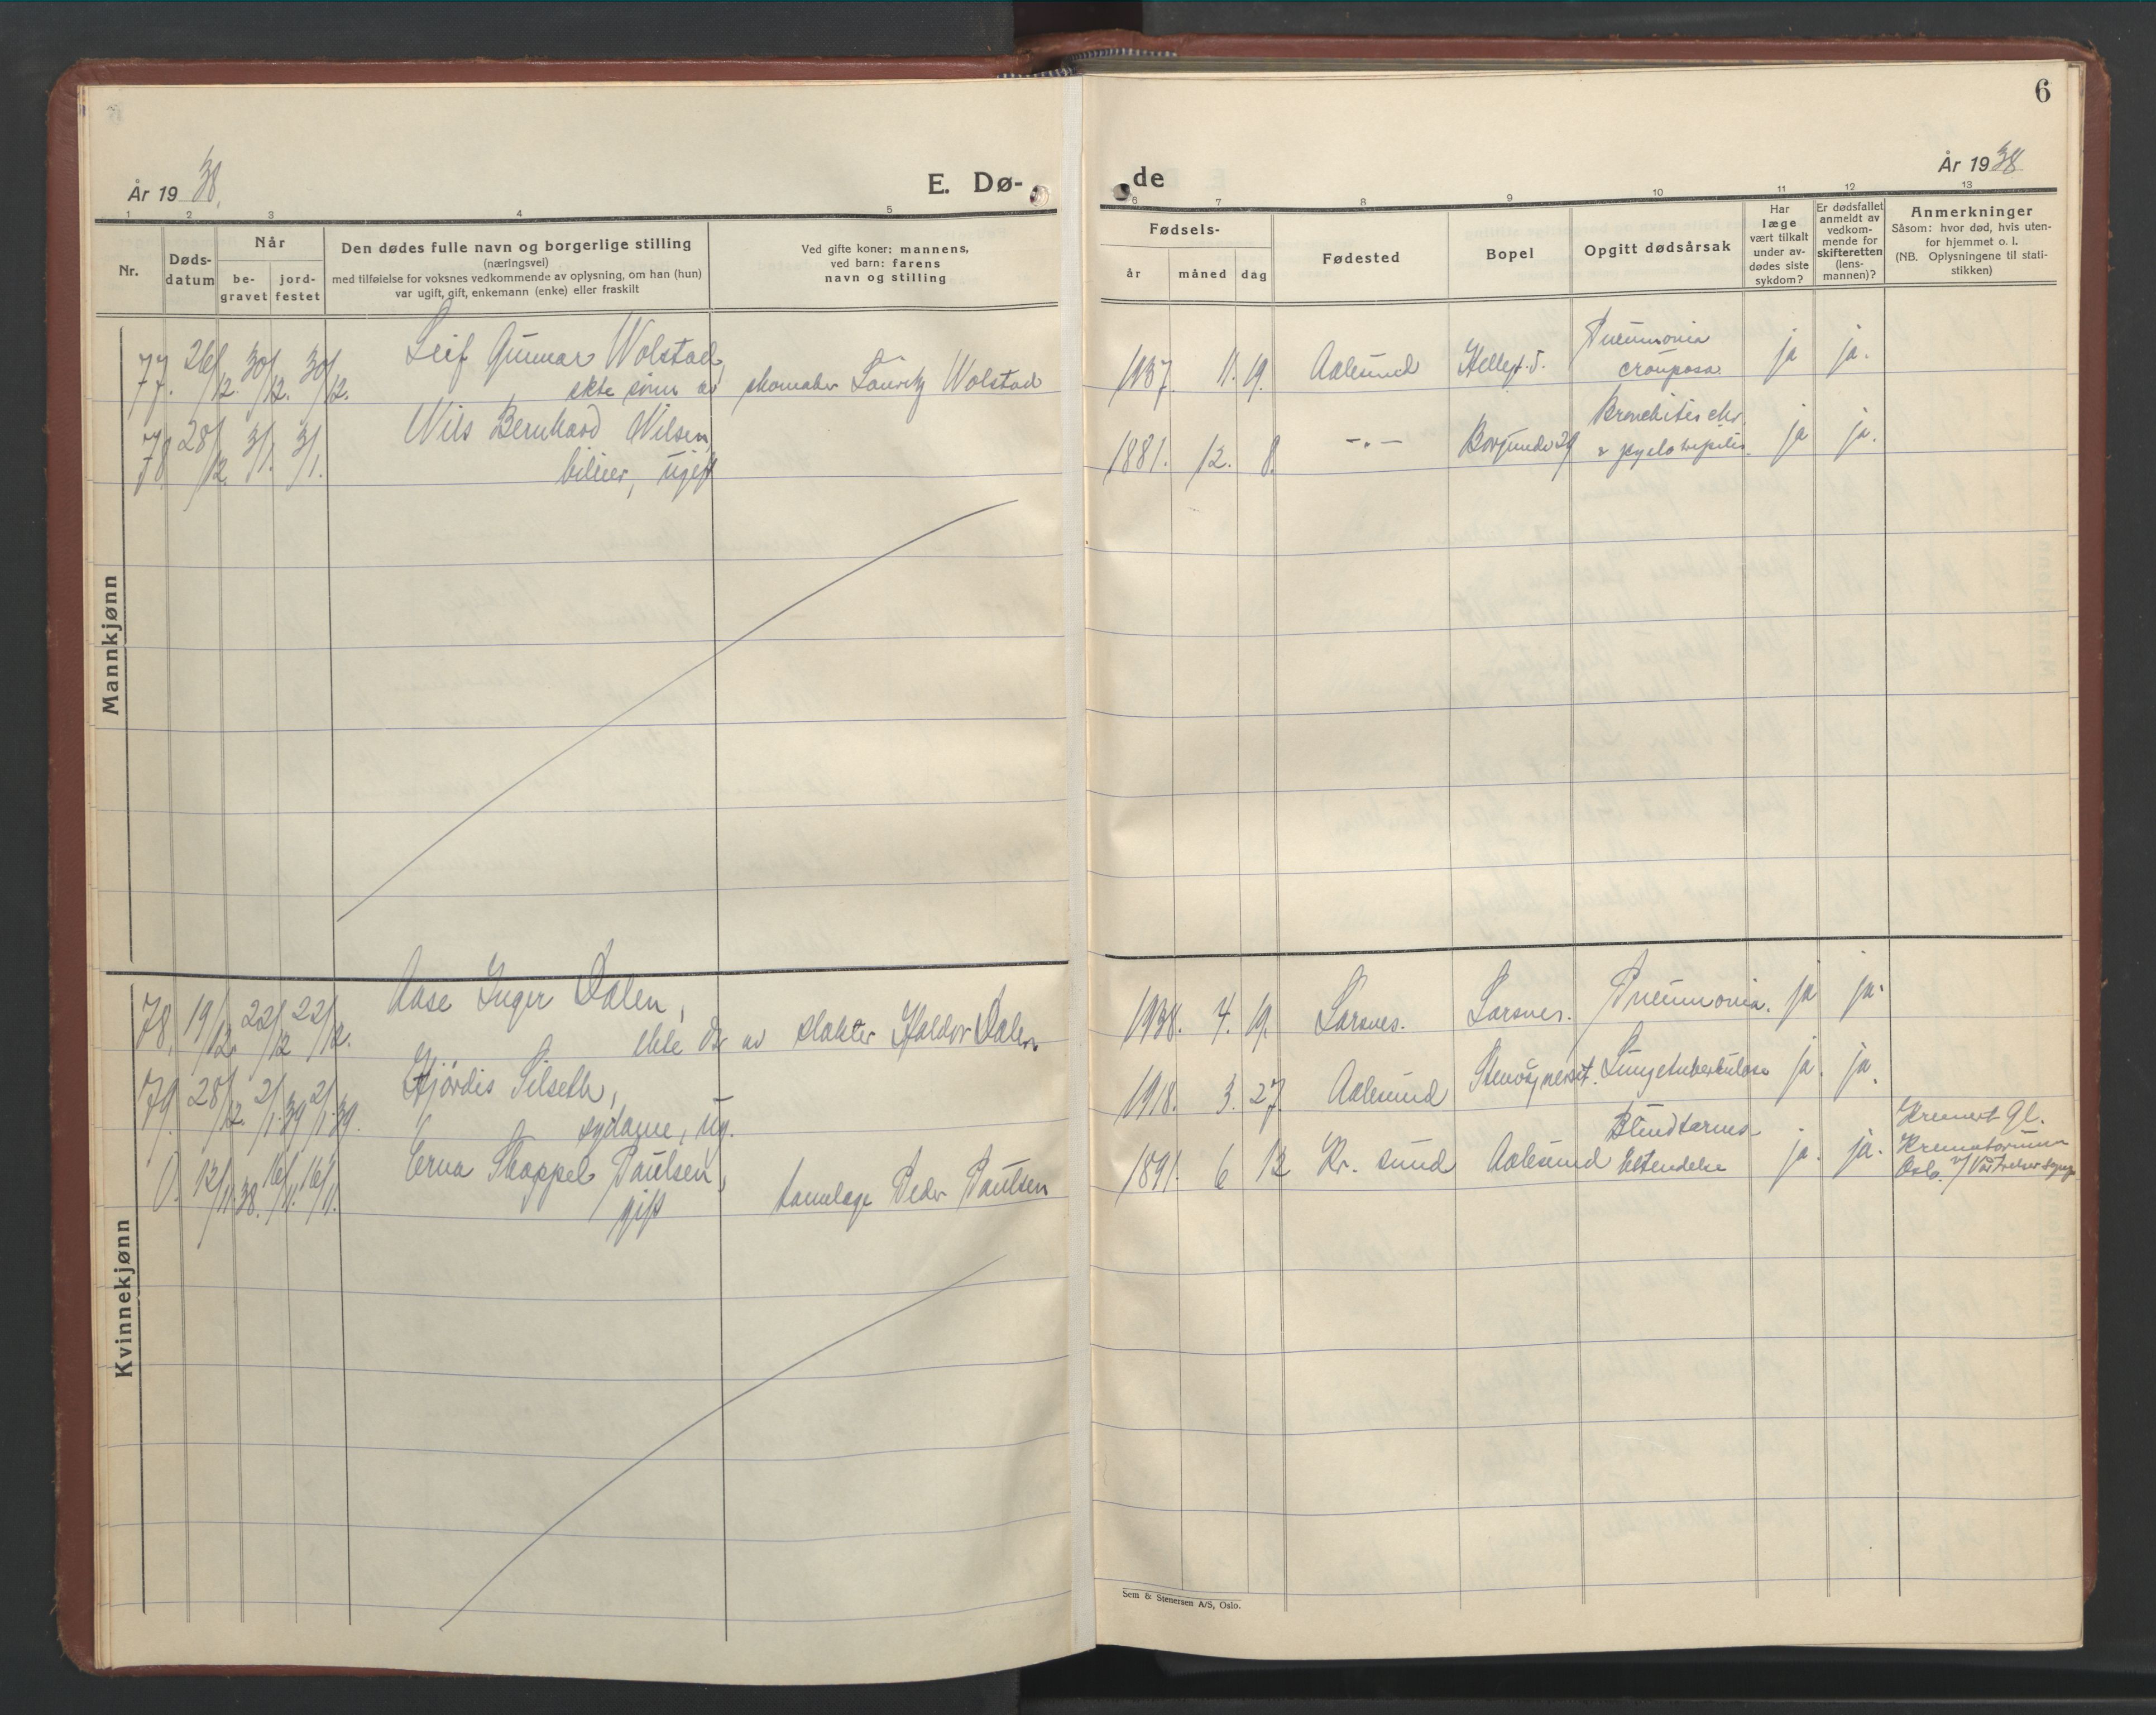 6
År 1938.
E. Dø-
de
År 1938
1 2 3 4 5 6 7 8 9 10 11 12 13
Nr.
Døds-
datum
Når
be-
gravet
jord-
festet
Den dødes fulle navn og borgerlige stilling
(næringsvei)
med tilføielse for voksnes vedkommende av oplysning, om han (hun)
var ugift, gift, enkemann (enke) eller fraskilt
Ved gifte koner: mannens,
ved barn: farens
navn og stilling
Fødsels-
år
måned
dag
Fødested
Bopel
Opgitt dødsårsak
Har
læge
vært tilkalt
under av-
dødes siste
sykdom?
Er dødsfallet
anmeldt av
vedkom-
mende for
skifteretten
(lens-
mannen)?
Anmerkninger
Såsom: hvor død, hvis uten-
for hjemmet o. l.
(NB. Oplysningene til stati-
stikken)
Mannkjønn
77. 26/12. 30/12. 30/12. Leif Gunnar Wolstad,
ekte sønn av skomaker Lauritz Wolstad
1937. 11. 19. Aalesund Helleg. 5. Pneumonia
crouposa. ja ja.
78 28/12. 3/1. 3/1. Nils Bernhard Nilsen,
ugift
1881. 12. 8. -"- Borgundv 29 Bronchitis chr.
ja ja.
Kvinnekjønn
78. 19/12. 22/12 22/12. Aase Inger Dalen,
ekte dr av slakter Haldor Dalen
1938. 4. 19. Larsnes. Larsnes. Pneumonia. ja ja.
79. 28/12. 2/1.39 2/1.39. Hjördis Silseth,
sydame, ug.
1918. 3. 27. Aalesund Lungetuberkulose ja. ja.
0. 13/11.38. 16/11. 16/11. Erna Skappel Paulsen,
gift tannlæge Peder Paulsen
1891. 6 12 Kr. sund Aalesund Blindtarms-
betendelse ja. ja. Kremert Gl.
Krematorium
Oslo. v/ Vår Frelser Sogn
Sem & Stenersen A/S, Oslo.